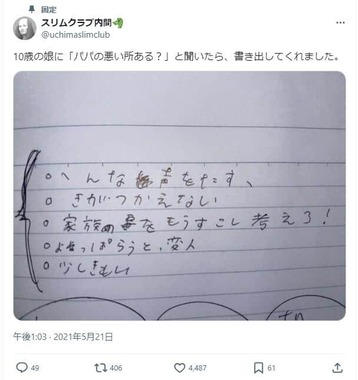 固定
スリムクラブ内間
@uchimaslimclub
10歳の娘に「パパの悪い所ある？」と聞いたら、書き出してくれました。
へんな声をだす、
きがつかえない
家族の事をもうすこし考えろ！
よっぱらうと、変人
少しきもい
午後1:03 · 2021年5月21日
49 406 4,487 61